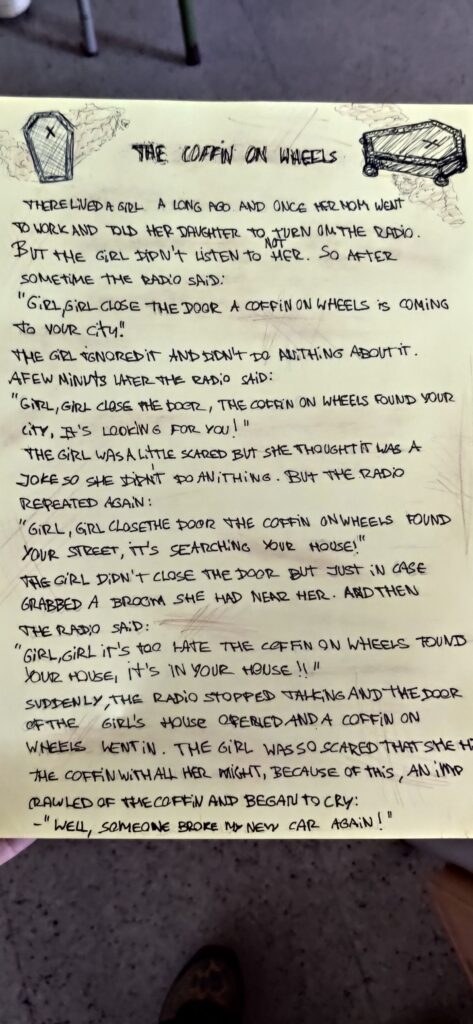 THE COFFIN ON WHEELS
THERE LIVED A GIRL A LONG AGO AND ONCE HER MOM WENT
TO WORK AND TOLD HER DAUGHTER TO NOT TURN ON THE RADIO.
BUT THE GIRL DIDN'T LISTEN TO HER. SO AFTER
SOMETIME THE RADIO SAID:
"GIRL, GIRL CLOSE THE DOOR A COFFIN ON WHEELS IS COMING
TO YOUR CITY!"
THE GIRL IGNORED IT AND DIDN'T DO ANITHING ABOUT IT.
A FEW MINUTS LATER THE RADIO SAID:
"GIRL, GIRL CLOSE THE DOOR, THE COFFIN ON WHEELS FOUND YOUR
CITY, IT'S LOOKING FOR YOU!"
THE GIRL WAS A LITTLE SCARED BUT SHE THOUGHT IT WAS A
JOKE SO SHE DIDN'T DO ANITHING. BUT THE RADIO
REPEATED AGAIN:
"GIRL, GIRL CLOSE THE DOOR THE COFFIN ON WHEELS FOUND
YOUR STREET, IT'S SEARCHING YOUR HOUSE!"
THE GIRL DIDN'T CLOSE THE DOOR BUT JUST IN CASE
GRABBED A BROOM SHE HAD NEAR HER. AND THEN
THE RADIO SAID:
"GIRL, GIRL IT'S TOO LATE THE COFFIN ON WHEELS FOUND
YOUR HOUSE, IT'S IN YOUR HOUSE!!"
SUDDENLY, THE RADIO STOPPED TALKING AND THE DOOR
OF THE GIRL'S HOUSE OPENED AND A COFFIN ON
WHEELS WENT IN. THE GIRL WAS SO SCARED THAT SHE
THE COFFIN WITH ALL HER MIGHT, BECAUSE OF THIS, AN IMP
CRAWLED OF THE COFFIN AND BEGAN TO CRY:
-"WELL, SOMEONE BROKE MY NEW CAR AGAIN!"